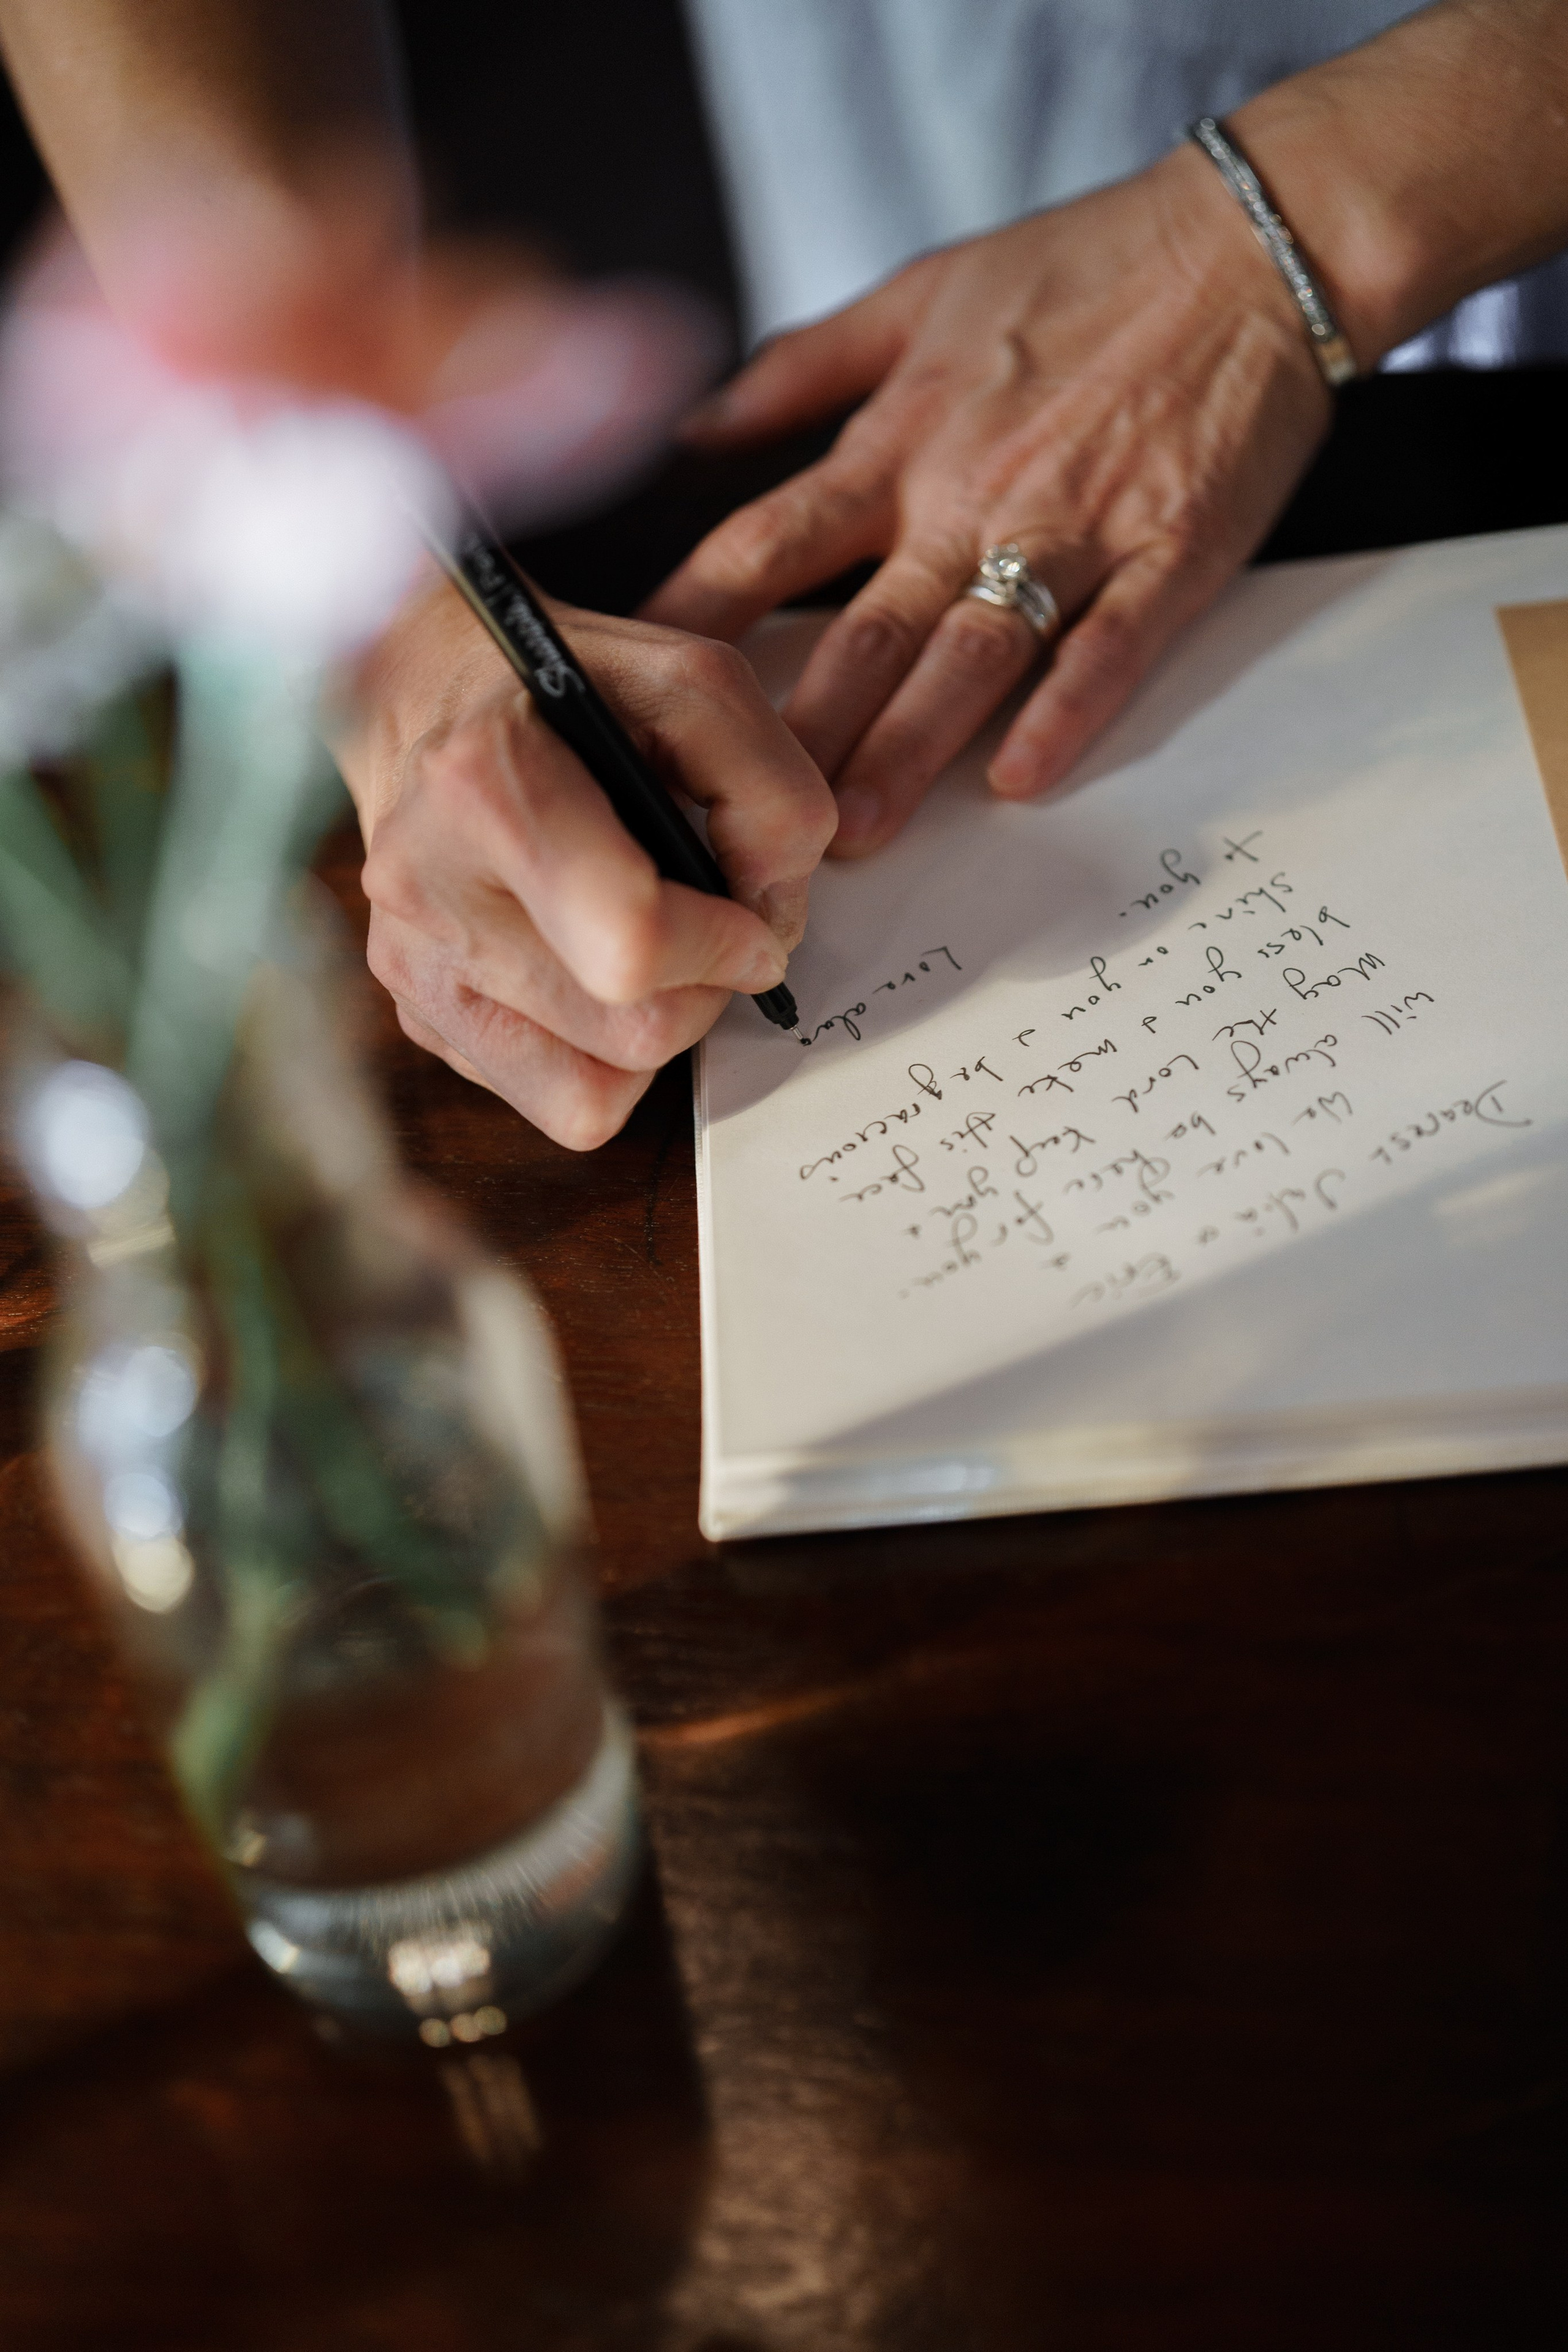 Dearest Julia & Eric
We love you &
will always be here for you.
May the Lord keep you &
bless you & make His face
shine on you & be gracious
to you.
Love
Sharpie